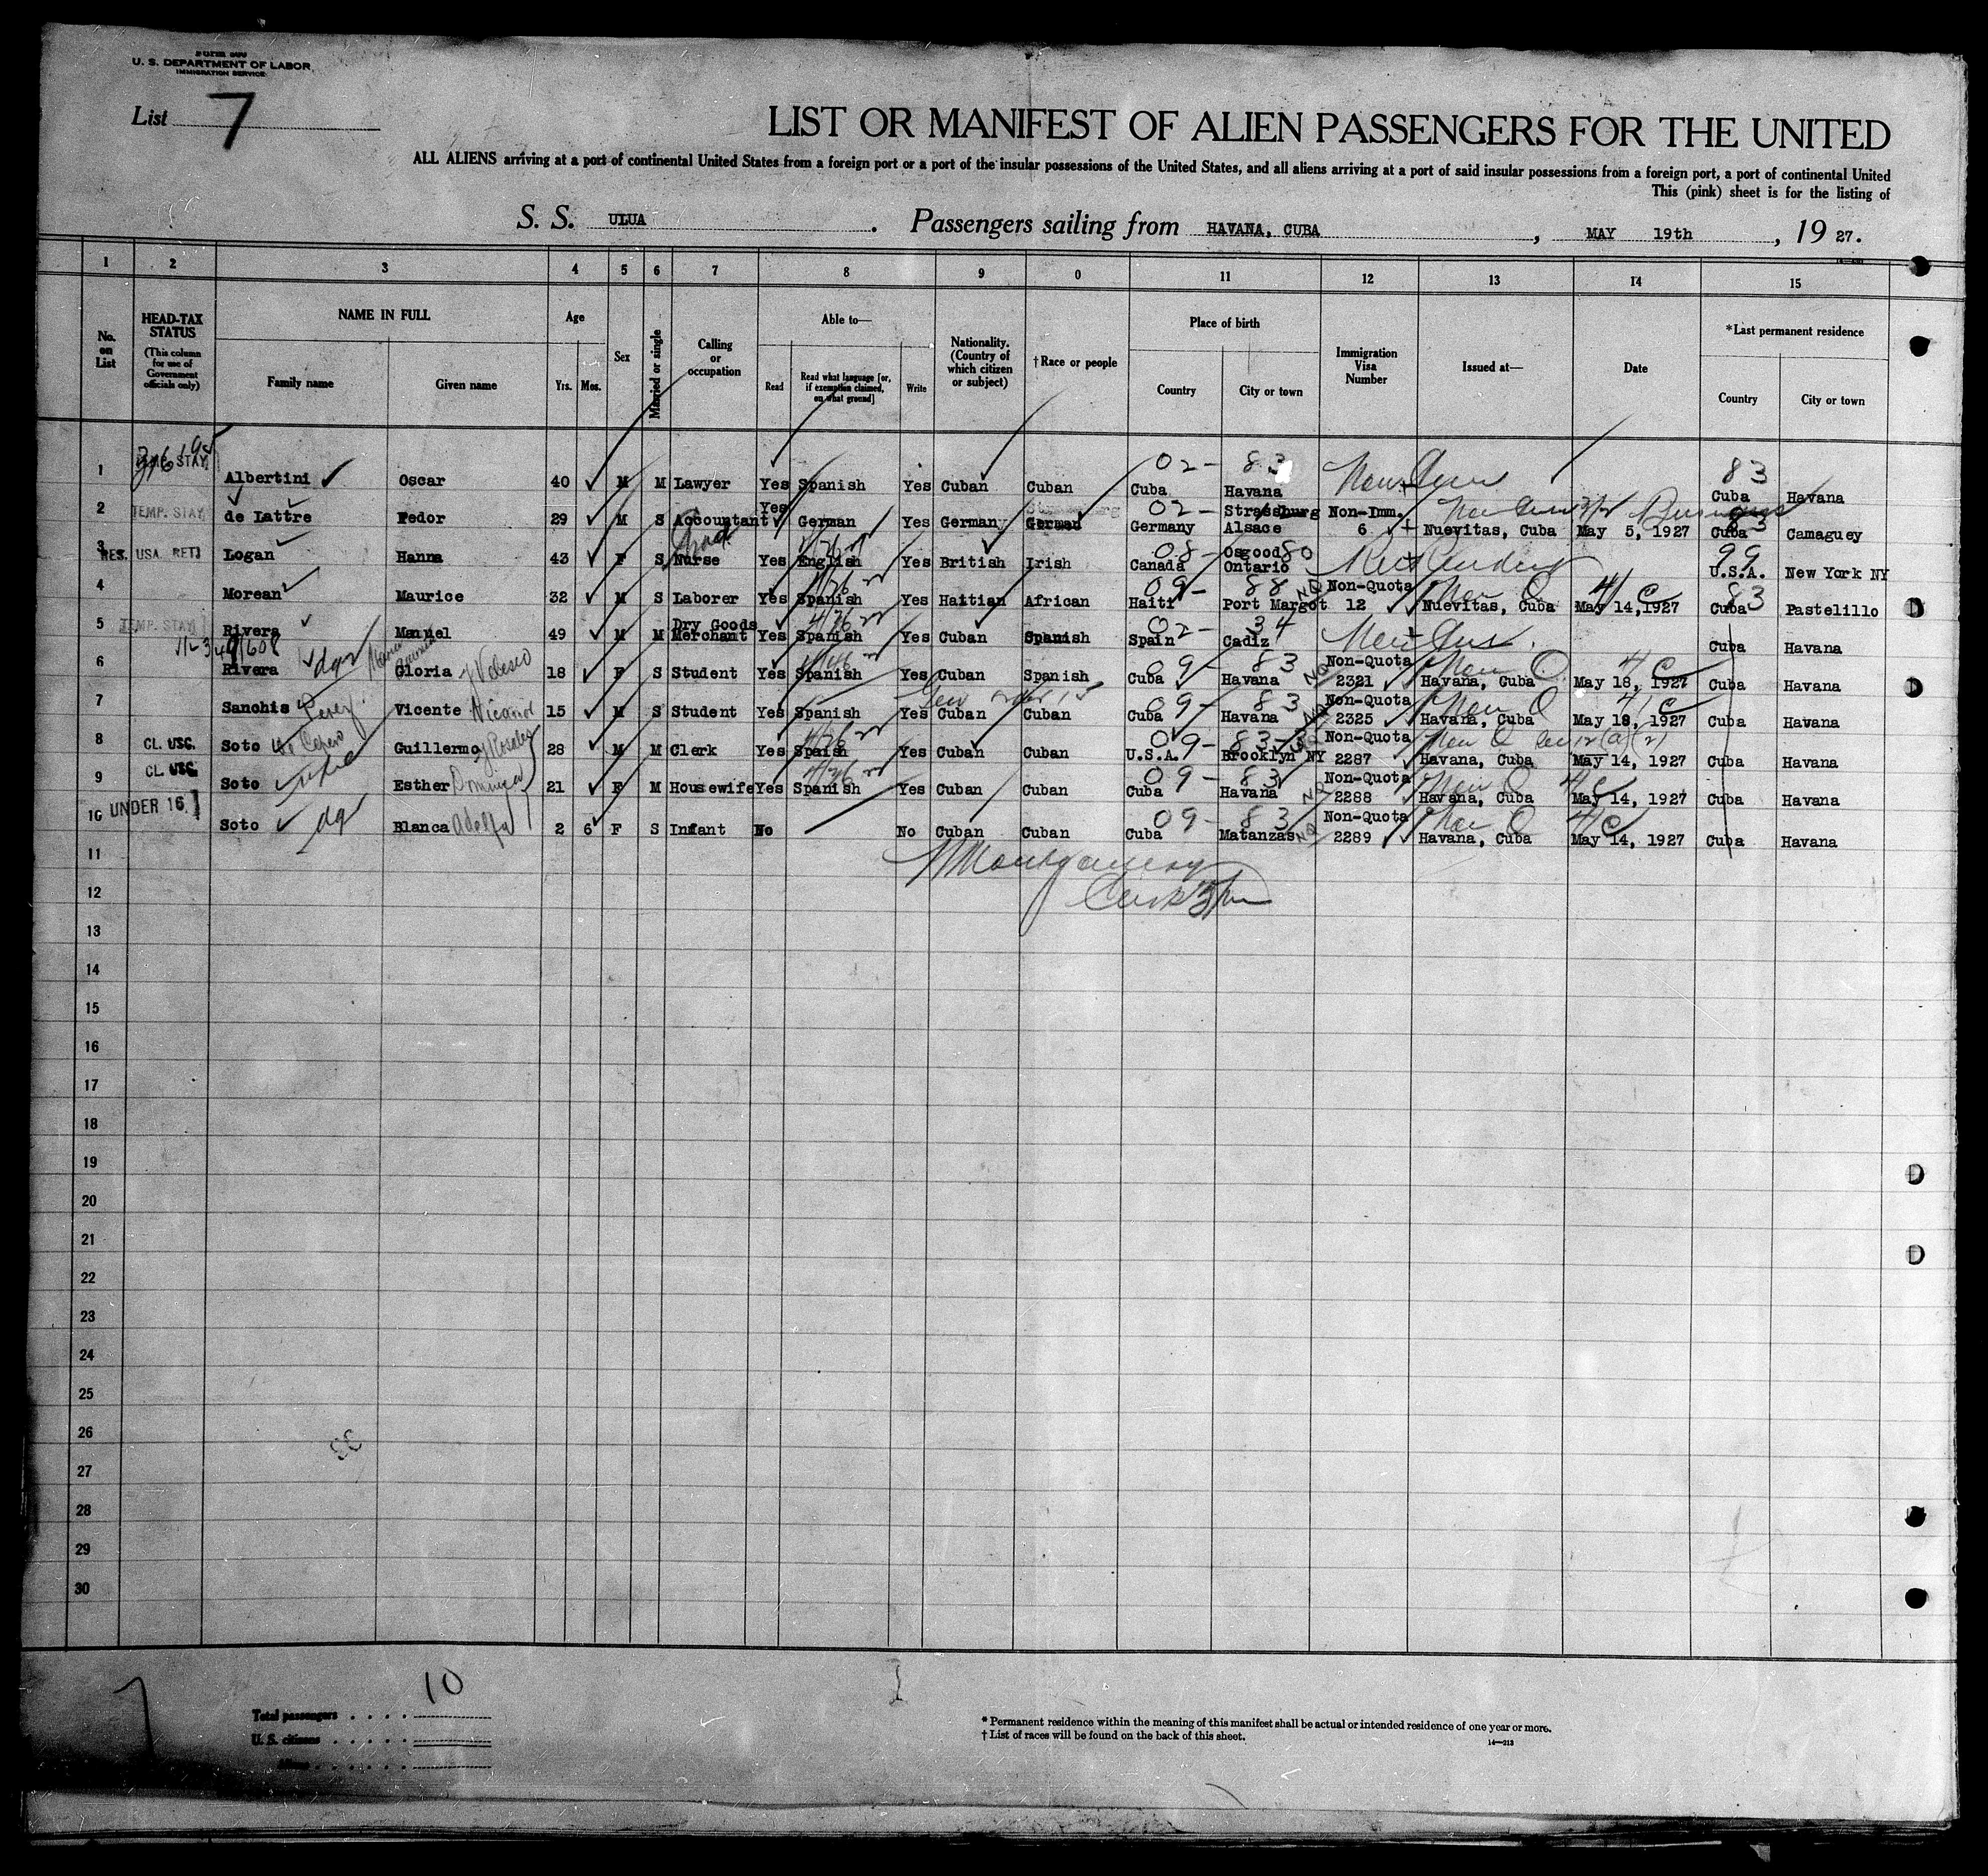 U. S. DEPARTMENT OF LABOR
IMMIGRATION SERVICE
List 7
LIST OR MANIFEST OF ALIEN PASSENGERS FOR THE UNITED
ALL ALIENS arriving at a port of continental United States from a foreign port or a port of the insular possessions of the United States, and all aliens arriving at a port of said insular possessions from a foreign port, a port of continental United
This (pink) sheet is for the listing of
S. S. ULUA. Passengers sailing from HAVANA, CUBA, MAY 19th, 1927.
1 2 3 4 5 6 7 8 9 0 11 12 13 14 15
No. on List
HEAD-TAX STATUS (This column for use of Government officials only)
NAME IN FULL Family name Given name
Age Yrs. Mos.
Sex
Married or single
Calling or occupation
Able to— Read Read what language [or, if exemption claimed, on what ground] Write
Nationality. (Country of which citizen or subject)
†Race or people
Place of birth Country City or town
Immigration Visa Number
Issued at—
Date
*Last permanent residence Country City or town
1 STAY Albertini Oscar 40 M M Lawyer Yes Spanish Yes Cuban Cuban 02- 83 Cuba Havana 83 Cuba Havana
2 TEMP. STAY de Lattre Fedor 29 M S Accountant Yes German Yes German German 02- Germany Strassburg Alsace Non-Imm. 6 Nuevitas, Cuba May 5, 1927 83 Cuba Camaguey
3 RES. USA. RET] Logan Hanna 43 F S Nurse Yes English Yes British Irish 08- 80 Canada Osgood Ontario 99 U.S.A. New York NY
4 Morean Maurice 32 M S Laborer Yes Spanish Yes Haitian African 09- 88 Haiti Port Margot NQ Non-Quota 12 Nuevitas, Cuba May 14,1927 83 Cuba Pastelillo
5 TEMP. STAY Rivera Manuel 49 M M Dry Goods Merchant Yes Spanish Yes Cuban Spanish 02- 34 Spain Cadiz Cuba Havana
6 Rivera Gloria y Velasco 18 F S Student Yes Spanish Yes Cuban Spanish 09- 83 Cuba Havana NQ Non-Quota 2321 Havana, Cuba May 18, 1927 Cuba Havana
7 Sanchis Perez Vicente Nicanor 15 M S Student Yes Spanish Yes Cuban Cuban 09- 83 Cuba Havana NQ Non-Quota 2325 Havana, Cuba May 18, 1927 Cuba Havana
8 CL. USC. Soto Guillermo y Rosales 28 M M Clerk Yes Spaish Yes Cuban Cuban 09- 83 U.S.A. Brooklyn NY Non-Quota 2287 Havana, Cuba May 14, 1927 Cuba Havana
9 CL. USC Soto Esther Dominica 21 F M Housewife Yes Spanish Yes Cuban Cuban 09- 83 Cuba Havana NQ Non-Quota 2288 Havana, Cuba May 14, 1927 Cuba Havana
10 UNDER 16.] Soto Blanca Adelfa 2 6 F S Infant No No Cuban Cuban 09- 83 Cuba Matanzas NQ Non-Quota 2289 Havana, Cuba May 14, 1927 Cuba Havana
11 Montgomery
12
13
14
15
16
17
18
19
20
21
22
23
24
25
26
27
28
29
30
Total passengers . . . . 10
U. S. citizens . . . . .
Aliens . . . . . .
* Permanent residence within the meaning of this manifest shall be actual or intended residence of one year or more.
† List of races will be found on the back of this sheet.
14—213